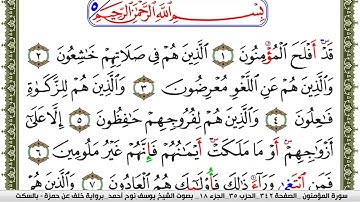 بِسْمِ اللَّهِ الرَّحْمَٰنِ الرَّحِيمِ
قَدْ أَفْلَحَ الْمُؤْمِنُونَ ١ الَّذِينَ هُمْ فِي صَلَاتِهِمْ خَاشِعُونَ ٢
وَالَّذِينَ هُمْ عَنِ اللَّغْوِ مُعْرِضُونَ ٣ وَالَّذِينَ هُمْ لِلزَّكَاةِ
فَاعِلُونَ ٤ وَالَّذِينَ هُمْ لِفُرُوجِهِمْ حَافِظُونَ ٥ إِلَّا عَلَىٰ
أَزْوَاجِهِمْ أَوْ مَا مَلَكَتْ أَيْمَانُهُمْ فَإِنَّهُمْ غَيْرُ مَلُومِينَ ٦
فَمَنِ ابْتَغَىٰ وَرَاءَ ذَٰلِكَ فَأُولَٰئِكَ هُمُ الْعَادُونَ ٧ وَالَّذِينَ هُمْ
سورة المؤمنون _ الصفحة ٣٤٢ _ الحزب ٣٥ _ الجزء ١٨ _ بصوت الشيخ يوسف نوح أحمد _ برواية خلف عن حمزة - بالسكت